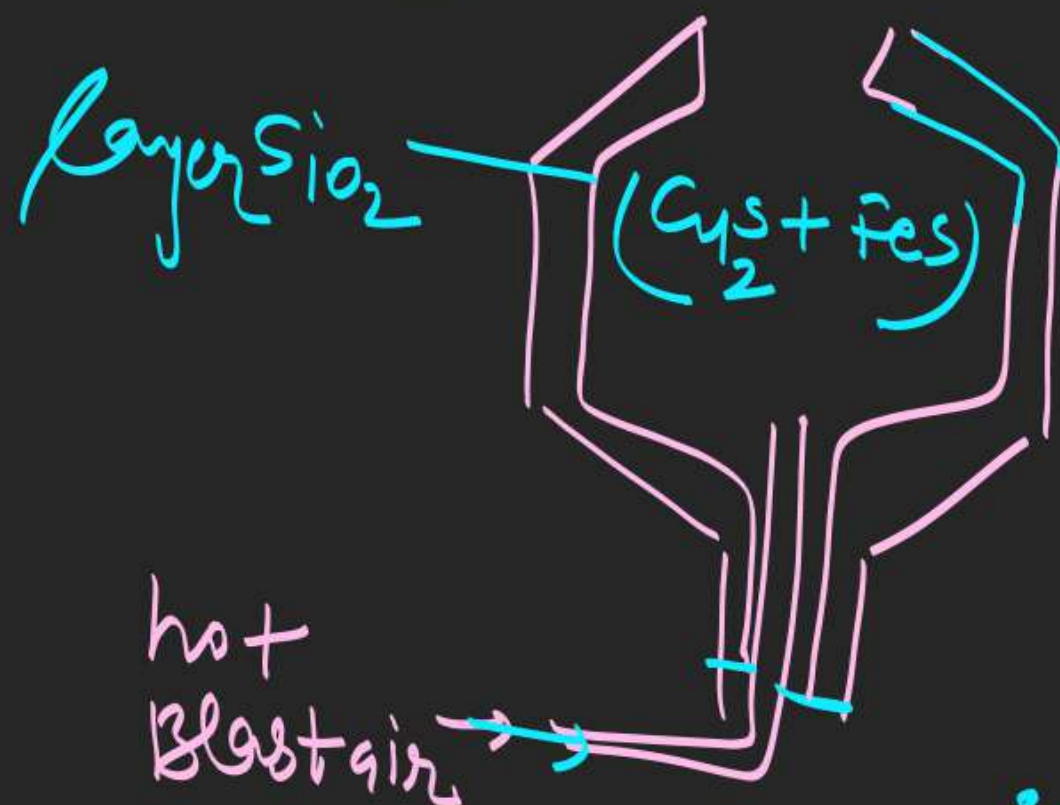 layer SiO₂
(Cu₂S + FeS)
hot
Blast air